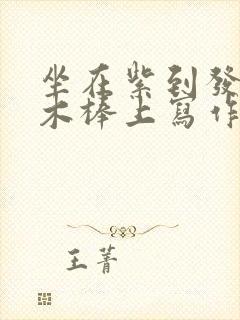 坐在紫到發
木棒上寫作
王菁